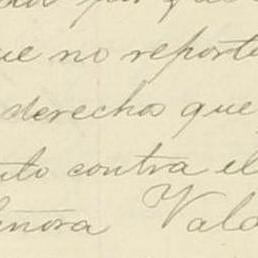 por que
que no reporte
derecho que
nto contra el
señora Vald